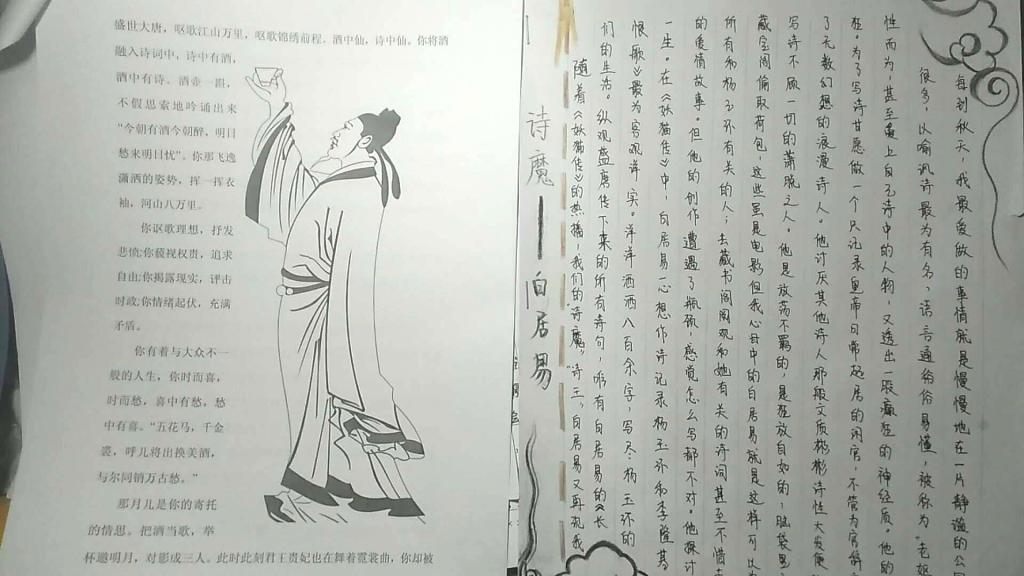 盛世大唐，呕歌江山万里，呕歌锦绣前程。酒中仙，诗中仙。你将酒
融入诗词中，诗中有酒，
酒中有诗。酒壶一跟，
不假思索地吟诵出来
"今朝有酒今朝醉，明日
愁来明日忧"。你那飞逸
潇洒的姿势，挥一挥衣
袖，河山八万里。
你讴歌理想，抒发
悲愤;你藐视权贵，追求
自由;你揭露现实，评击
时政;你情绪起伏，充满
矛盾。
你有着与大众不一
般的人生，你时而喜，
时而愁，喜中有愁，愁
中有喜。"五花马，千金
裘，呼儿将出换美酒，
与尔同销万古愁。"
那月儿是你的寄托
的情思。把酒当歌，举
杯邀明月，对影成三人。此时此刻君王贵妃也在舞着霓裳曲，你却被
诗魔——白居易
随着《妖猫传》的热播，我们的诗魔，诗王，白居易又再现我
们的生活。纵观盛唐传下来的所有诗句，唯有白居易的《长
恨歌》最为客观详实。洋洋洒洒八百余字，写尽杨玉环的
一生。在《妖猫传》中，白居易一心想作诗记录杨玉环和李隆基
的爱情故事。但他的创作遭遇了瓶颈，感觉怎么写都不对。他探讨
所有和杨玉环有关的人；去藏书阁阅观和她有关的诗词甚至不惜去
藏宝阁偷取荷包，这些虽是电影但我心目中的白居易就是这样可以为
写诗不顾一切的萧脱之人。他是放荡不羁的，是狂放自如的，脑袋里
了无数幻想的浪漫诗人。他讨厌其他诗人那般文质彬彬诗性大发便
在。为了写诗甘愿做一个只记录皇帝日常起居的闲官，不管为官
性而为，甚至爱上自己诗中的人物，又透出一段癫狂的神经质。他的
很多，以喻讽诗最为有名，语言通俗易懂，被称为"老妪
每到秋天，我最爱做的事情就是慢慢地在一片静谧的公园